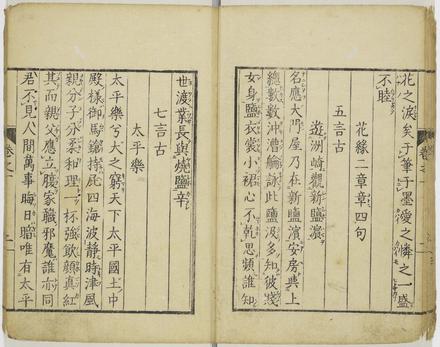 花之涙矣于筆于墨愛之憐之一盛
不睦
花緣二章章四句
五言古
遊洲崎觀新鹽濱
名應大門屋乃在新鹽濱安房典上
總數數沖漕輪詠此鹽汲多知彼賤
女身鹽衣裳小裙心不乾思煩誰知
世渡業長與燒鹽辛
七言古
太平樂
太平樂兮大之窮天下太平國土中
殿樣御馬鎗持庇四海波靜時津風
親分子分柔和理一杯強飲顔真紅
其而親父應立腹家職邪魔誰亦同
君不見人間萬事晦日暗唯有太平
卷之一